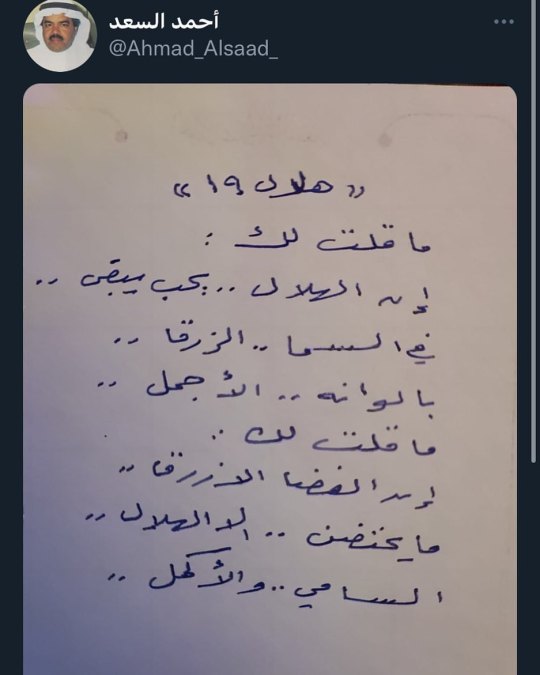 أحمد السعد
@Ahmad_Alsaad_
«هلال ١٩»
ما قلت لك :
إن الهلال .. يحب يبقى ..
في السما .. الزرقا ..
بالوانه .. الأجمل ..
ما قلت لك ..
إن الفضا الازرق ..
ما يحتضن .. الا الهلال ..
السامي .. والأكمل ..